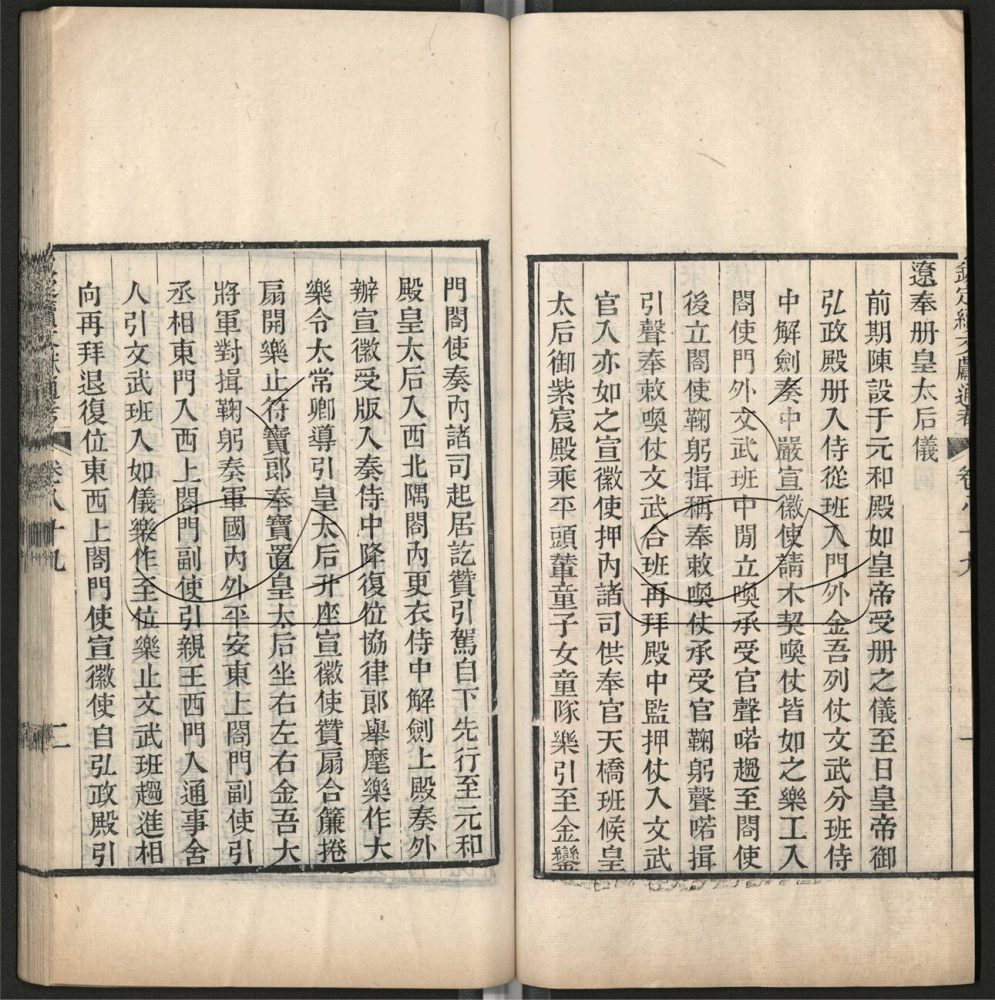 欽定續文獻通考 卷八十九 一
遼奉册皇太后儀
前期陳設于元和殿如皇帝受册之儀至日皇帝御
弘政殿册入侍從班入門外金吾列仗文武分班侍
中解劍奏中嚴宣徽使請木契喚仗皆如之樂工入
閤使門外文武班中間立喚承受官聲喏趨至閤使
後立閤使鞠躬揖稱奉敕喚仗承受官鞠躬聲喏揖
引聲奉敕喚仗文武合班再拜殿中監押仗入文武
官入亦如之宣徽使押內諸司供奉官天橋班候皇
太后御紫宸殿乘平頭輦童子女童隊樂引至金鑾
門閤使奏內諸司起居訖贊引駕自下先行至元和
殿皇太后入西北隅閤內更衣侍中解劍上殿奏外
辦宣徽受版入奏侍中降復位協律郎舉麾樂作太
樂令太常卿導引皇太后升座宣徽使贊扇合簾捲
扇開樂止符寶郎奉寶置皇太后坐右左右金吾大
將軍對揖鞠躬奏軍國內外平安東上閤門副使引
丞相東門入西上閤門副使引親王西門入通事舍
人引文武班入如儀樂作至位樂止文武班趨進相
向再拜退復位東西上閤門使宣徽使自弘政殿引
卷八十九 二